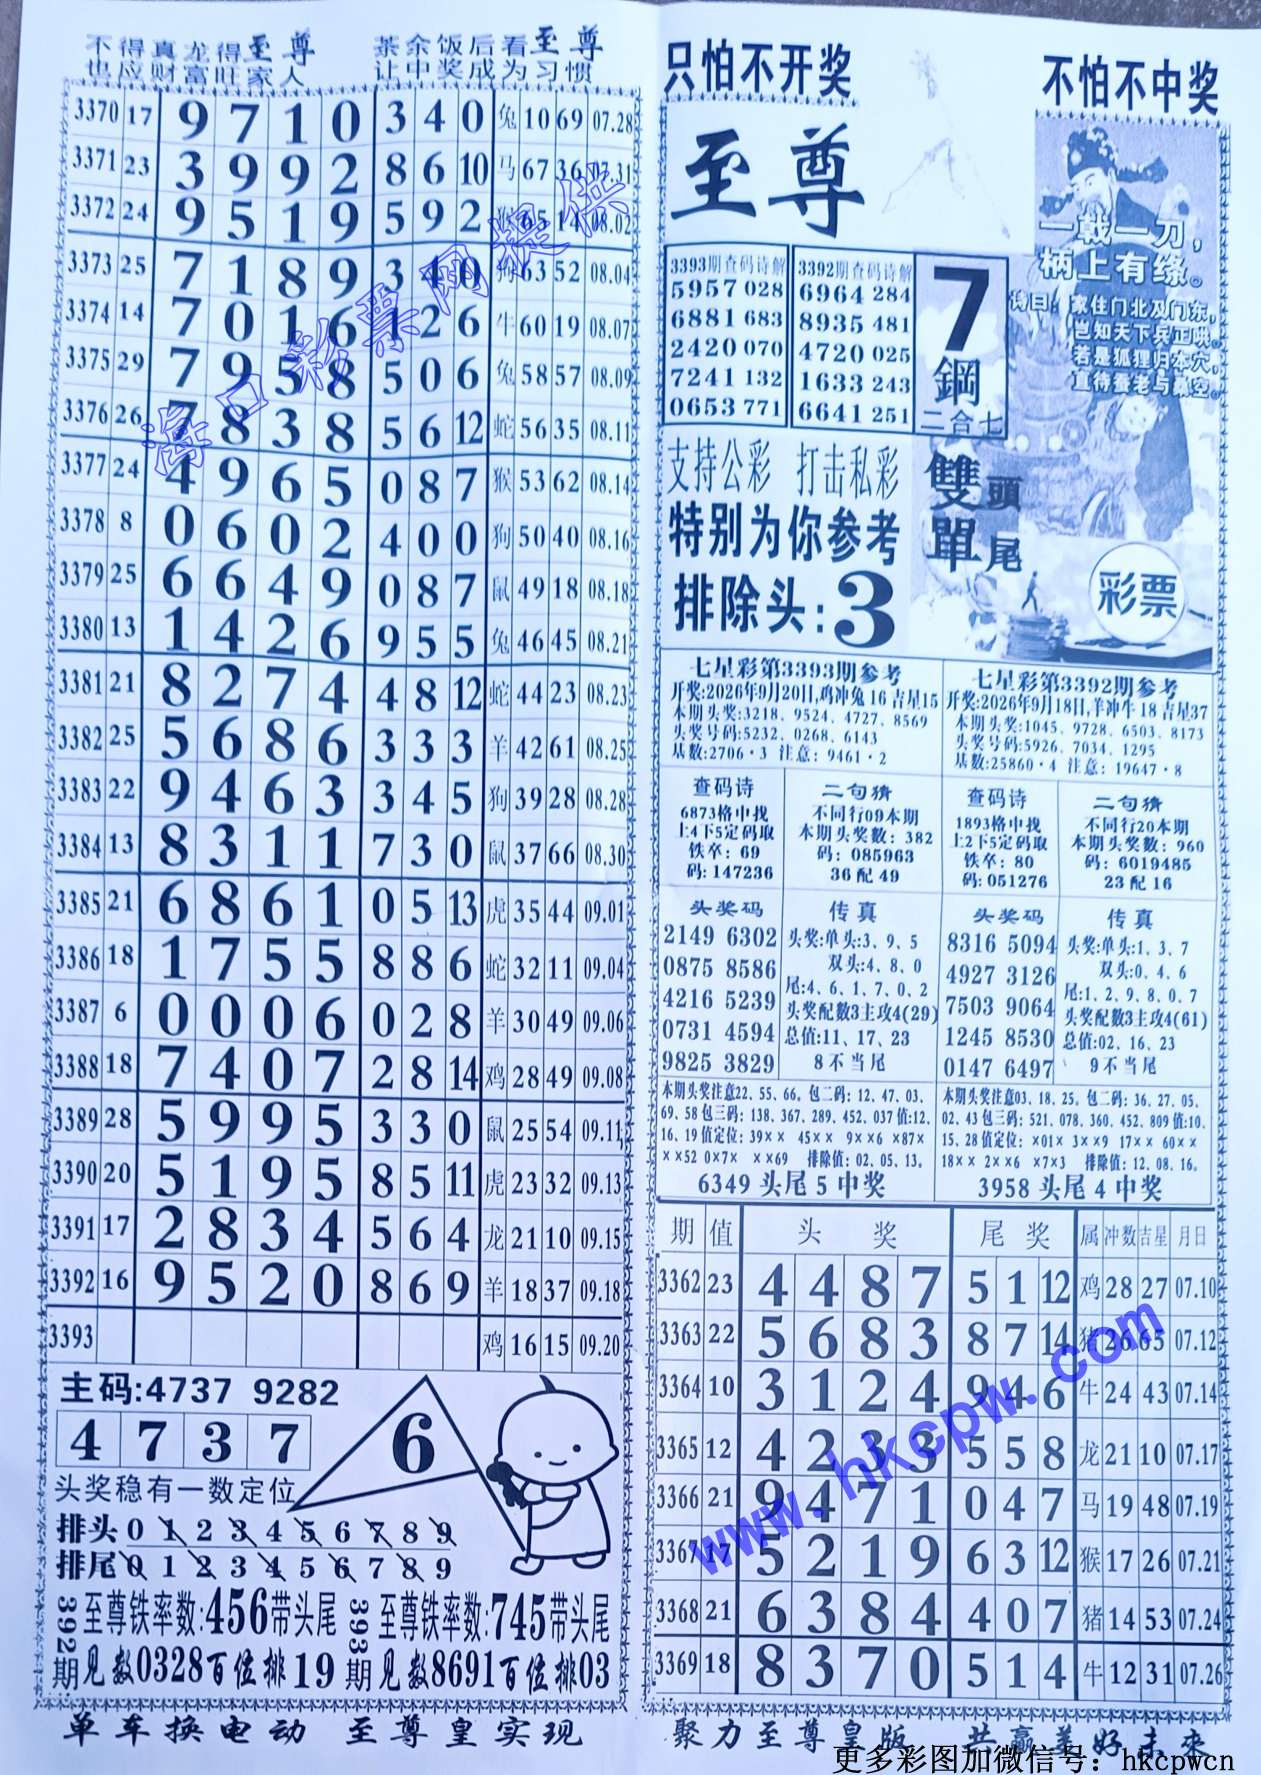 不得真龙得至尊
也应财富旺家人
茶余饭后看至尊
让中奖成为习惯
3370 17 9 7 1 0 3 4 0 兔 10 69 07.28
3371 23 3 9 9 2 8 6 10 马 67 36 07.31
3372 24 9 5 1 9 5 9 2 猴 65 14 08.02
3373 25 7 1 8 9 3 4 0 狗 63 52 08.04
3374 14 7 0 1 6 1 2 6 牛 60 19 08.07
3375 29 7 9 5 8 5 0 6 兔 58 57 08.09
3376 26 7 8 3 8 5 6 12 蛇 56 35 08.11
3377 24 4 9 6 5 0 8 7 猴 53 62 08.14
3378 8 0 6 0 2 4 0 0 狗 50 40 08.16
3379 25 6 6 4 9 0 8 7 鼠 49 18 08.18
3380 13 1 4 2 6 9 5 5 兔 46 45 08.21
3381 21 8 2 7 4 4 8 12 蛇 44 23 08.23
3382 25 5 6 8 6 3 3 3 羊 42 61 08.25
3383 22 9 4 6 3 3 4 5 狗 39 28 08.28
3384 13 8 3 1 1 7 3 0 鼠 37 66 08.30
3385 21 6 8 6 1 0 5 13 虎 35 44 09.01
3386 18 1 7 5 5 8 8 6 蛇 32 11 09.04
3387 6 0 0 0 6 0 2 8 羊 30 49 09.06
3388 18 7 4 0 7 2 8 14 鸡 28 49 09.08
3389 28 5 9 9 5 3 3 0 鼠 25 54 09.11
3390 20 5 1 9 5 8 5 11 虎 23 32 09.13
3391 17 2 8 3 4 5 6 4 龙 21 10 09.15
3392 16 9 5 2 0 8 6 9 羊 18 37 09.18
3393 鸡 16 15 09.20
主码:4737 9282
4 7 3 7
6
头奖稳有一数定位
排头 0 1 2 3 4 5 6 7 8 9
排尾 0 1 2 3 4 5 6 7 8 9
392期
至尊铁率数:456带头尾
见数0328百位排19
393期
至尊铁率数:745带头尾
见数8691百位排03
单车换电动 至尊皇实现
只怕不开奖
不怕不中奖
至尊
3393期查码诗解
5957 028
6881 683
2420 070
7241 132
0653 771
3392期查码诗解
6964 284
8935 481
4720 025
1633 243
6641 251
7
鋼
二合七
一戟一刀，
柄上有缘。
诗曰：家住门北及门东，
岂知天下兵正哄。
若是狐狸归本穴，
直待蚕老与桑空。
支持公彩 打击私彩
特别为你参考
排除头:3
雙頭
單尾
彩票
七星彩第3393期参考
开奖:2026年9月20日,鸡冲兔 16 吉星15
本期头奖:3218、9524、4727、8569
头奖号码:5232、0268、6143
基数:2706·3 注意：9461·2
七星彩第3392期参考
开奖:2026年9月18日,羊冲牛 18 吉星37
本期头奖:1045、9728、6503、8173
头奖号码:5926、7034、1295
基数:25860·4 注意：19647·8
查码诗
6873格中找
上4下5定码取
铁卒：69
码:147236
二句猜
不同行09本期
本期头奖数：382
码：085963
36 配 49
查码诗
1893格中找
上2下5定码取
铁卒：80
码:051276
二句猜
不同行20本期
本期头奖数：960
码：6019485
23 配 16
头奖码
2149 6302
0875 8586
4216 5239
0731 4594
9825 3829
传真
头奖:单头:3、9、5
双头:4、8、0
尾:4、6、1、7、0、2
头奖配数3主攻4(29)
总值:11、17、23
8 不当尾
头奖码
8316 5094
4927 3126
7503 9064
1245 8530
0147 6497
传真
头奖:单头:1、3、7
双头:0、4、6
尾:1、2、9、8、0、7
头奖配数3主攻4(61)
总值:02、16、23
9 不当尾
本期头奖注意22、55、66。包二码：12、47、03、
69、58 包三码：138、367、289、452、037 值:12、
16、19 值定位：39×× 45×× 9××6 ×87×
××52 0×7× ××69 排除值:02、05、13。
6349 头尾 5 中奖
本期头奖注意03、18、25。包二码：36、27、05、
02、43 包三码：521、078、360、452、809 值:10、
15、28 值定位：×01× 3××9 17×× 60××
18×× 2××6 ×7×3 排除值：12、08、16。
3958 头尾 4 中奖
期 值 头奖 尾奖 属 冲数 吉星 月日
3362 23 4 4 8 7 5 1 12 鸡 28 27 07.10
3363 22 5 6 8 3 8 7 14 猪 26 65 07.12
3364 10 3 1 2 4 9 4 6 牛 24 43 07.14
3365 12 4 2 3 3 5 5 8 龙 21 10 07.17
3366 21 9 4 7 1 0 4 7 马 19 48 07.19
3367 17 5 2 1 9 6 3 12 猴 17 26 07.21
3368 21 6 3 8 4 4 0 7 猪 14 53 07.24
3369 18 8 3 7 0 5 1 4 牛 12 31 07.26
聚力至尊皇版 共赢美好未来
海口彩票网提供
www.hkcpw.com
更多彩图加微信号：hkcpwcn